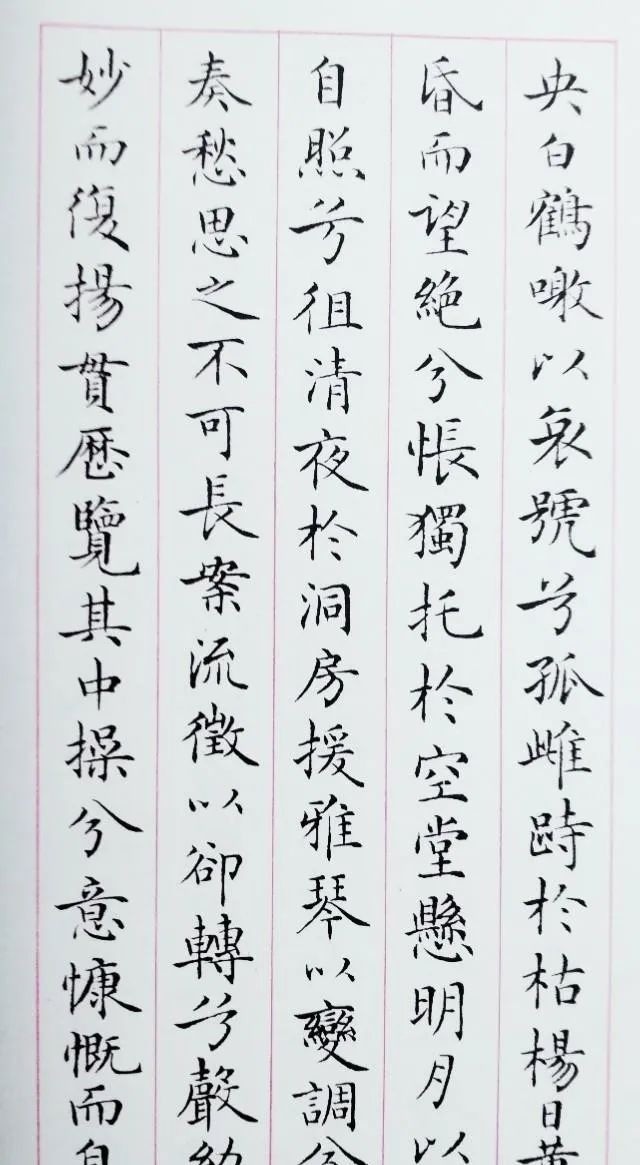 央白鶴噭以哀號兮孤雌跱於枯楊日黄
昏而望絶兮悵獨托於空堂懸明月以
自照兮徂清夜於洞房援雅琴以變調兮
奏愁思之不可長案流徵以卻轉兮聲幼
妙而復揚貫歷覽其中操兮意慷慨而自